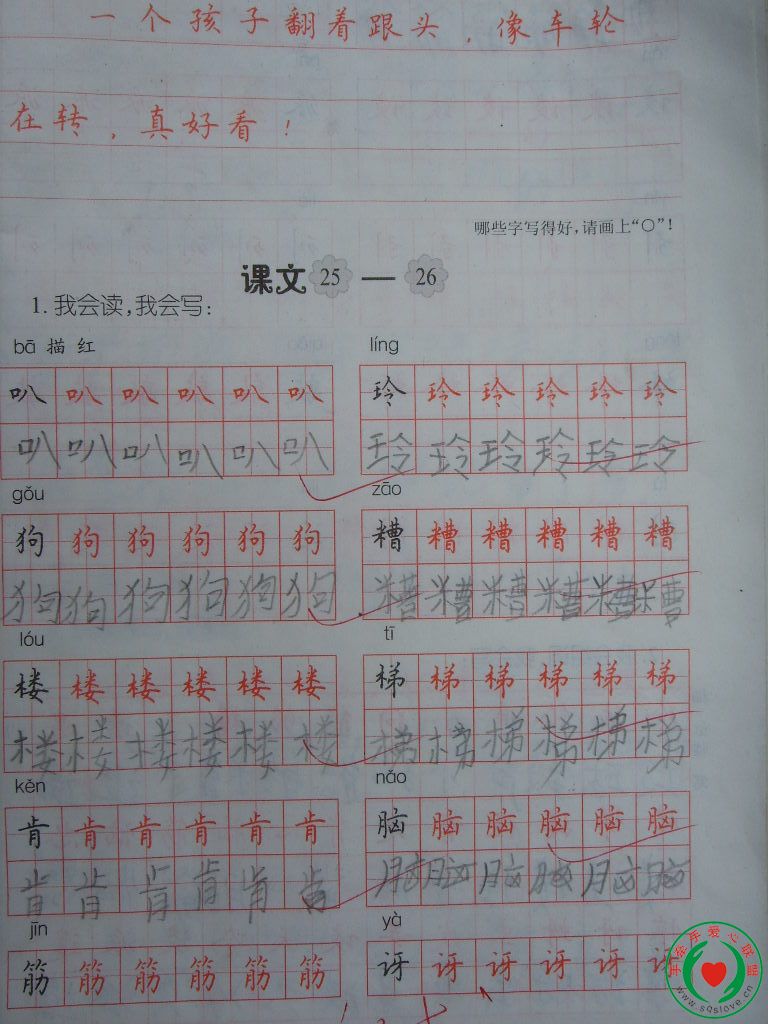 一个孩子翻着跟头，像车轮
在转，真好看！
哪些字写得好，请画上“○”！
课文 25 — 26
1. 我会读，我会写：
bā 描红 líng
叭 叭 叭 叭 叭 叭 玲 玲 玲 玲 玲 玲
叭 叭 叭 叭 叭 叭 玲 玲 玲 玲 玲 玲
gǒu zāo
狗 狗 狗 狗 狗 狗 糟 糟 糟 糟 糟 糟
狗 狗 狗 狗 狗 狗 糟 糟 糟 糟 糟 糟
lóu tī
楼 楼 楼 楼 楼 楼 梯 梯 梯 梯 梯 梯
楼 楼 楼 楼 楼 楼 梯 梯 梯 梯 梯 梯
kěn nǎo
肯 肯 肯 肯 肯 肯 脑 脑 脑 脑 脑 脑
肯 肯 肯 肯 肯 肯 脑 脑 脑 脑 脑 脑
jīn yà
筋 筋 筋 筋 筋 筋 讶 讶 讶 讶 讶 讶
手牵手爱心联盟
www.sqslove.cn